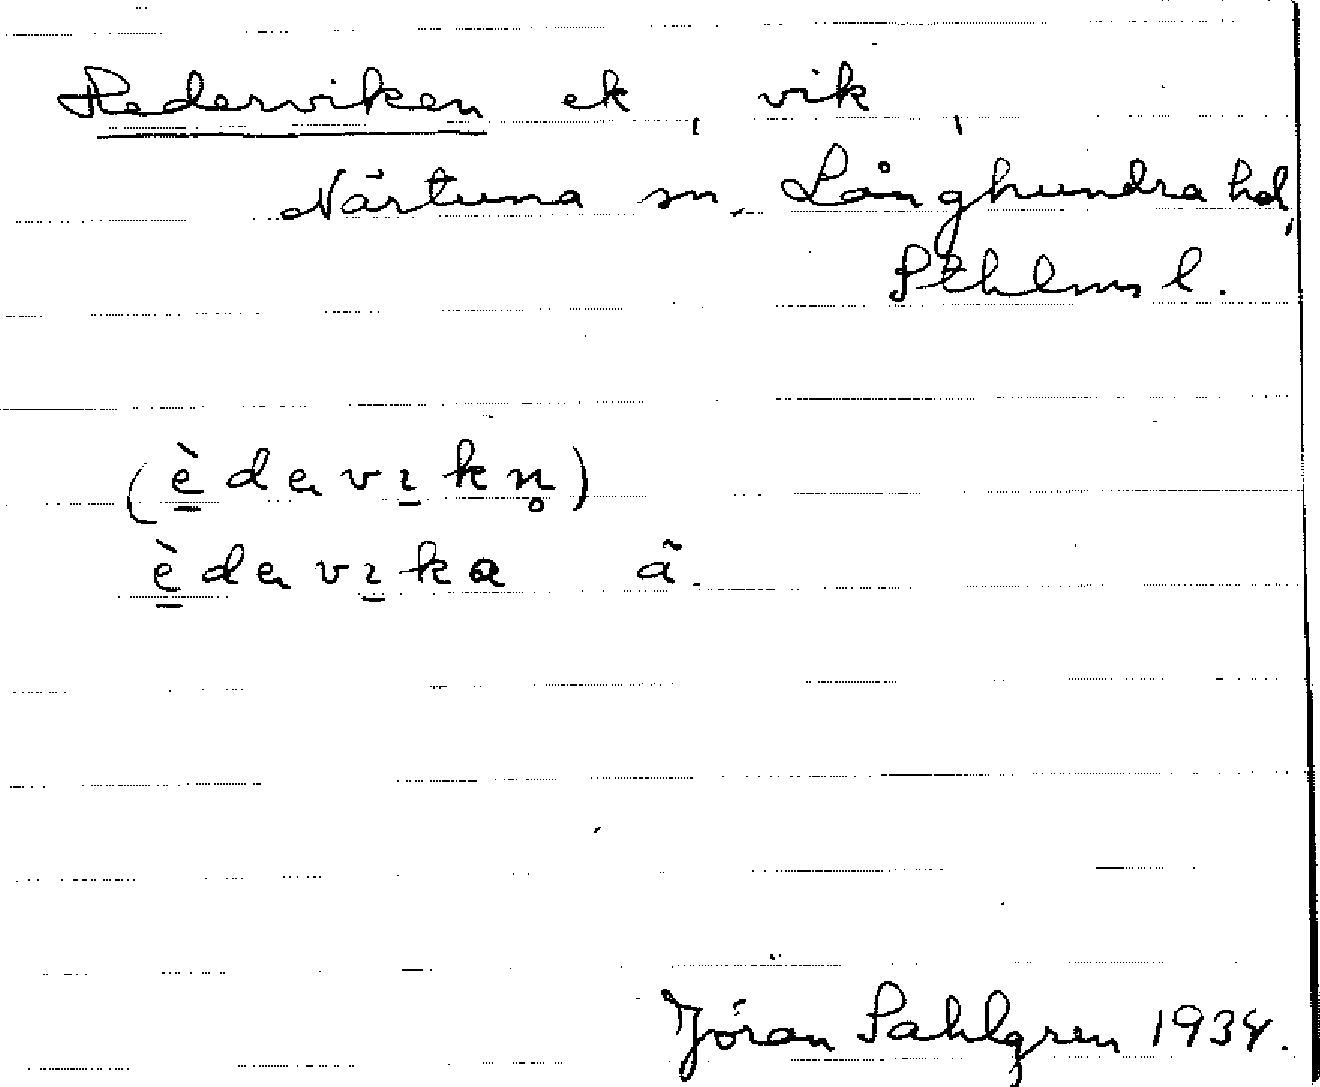 Rederviken ek, vik,
Närtuna sn, Långhundra hd,
Sthlms l.
(è̱ de vı̱ kn̥)
è̱ de vı̱ ka ã.
Jöran Sahlgren 1934.